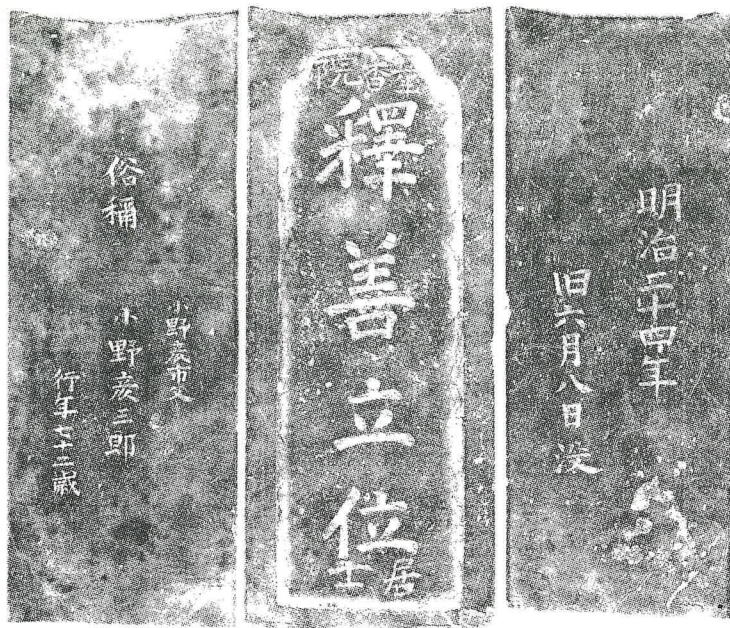 明治二十四年
旧六月八日没
香院
釋善立位
居士
小野彦市父
俗稱 小野彦三郎
行年七十二歳